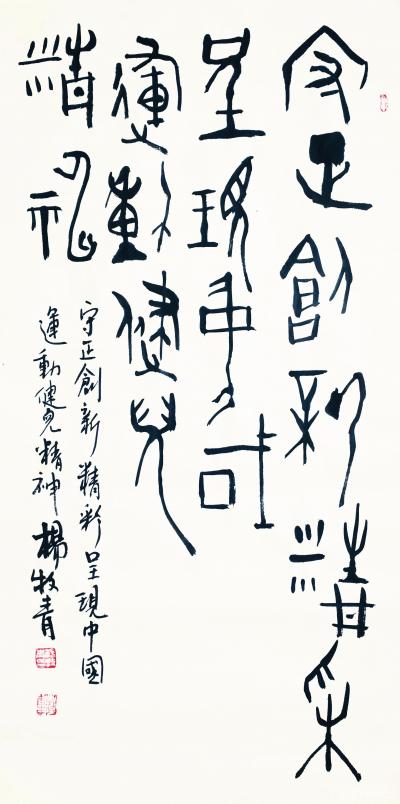 守正創新精采
呈現中國
運動健兒
精神
守正創新精彩呈現中國
運動健兒精神 楊牧青